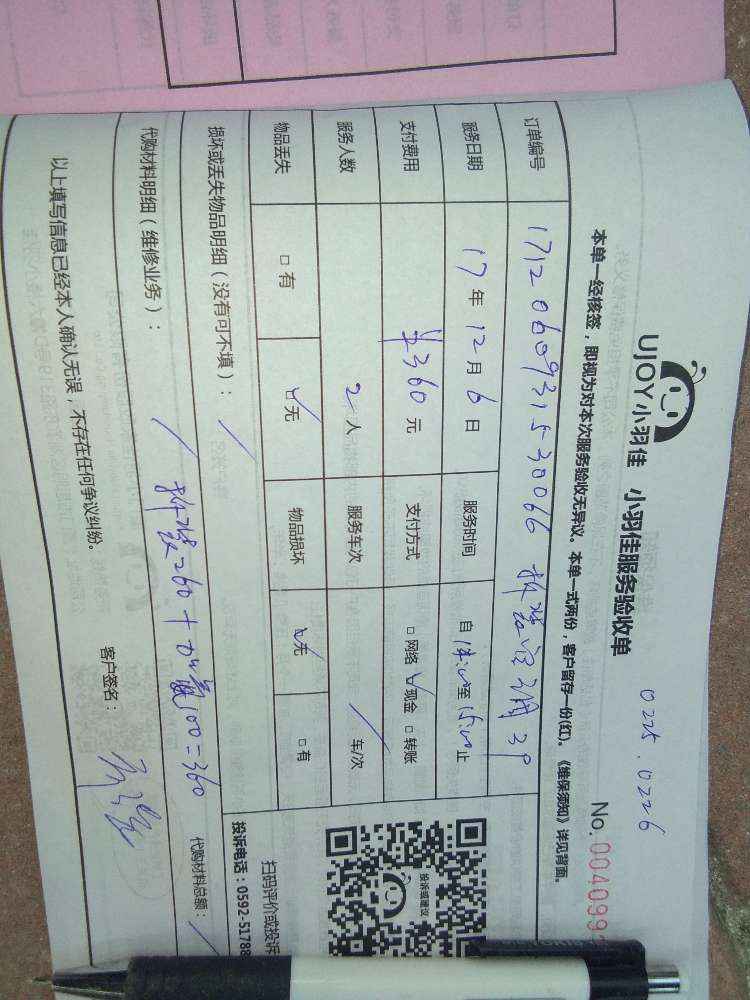 0225.0226
UJOY小羽佳 小羽佳服务验收单
No.004099
本单一经核签，即视为对本次服务验收无异议。本单一式两份，客户留存一份(红)。《维保须知》详见背面。
订单编号 1712060931530066 拆装空调3P
服务日期 17年12月6日 服务时间 自 至15:00止
支付费用 ¥360元 支付方式 □网络 ☑现金 □转账
服务人数 2人 服务车次 / 车/次
物品丢失 □有 ☑无 物品损坏 ☑无 □有
投诉或建议
扫码评价或投诉
投诉电话：0592-51788
损坏或丢失物品明细（没有可不填）： /
代购材料明细（维修业务）： / 拆装260+加氟100=360 代购材料总额： /
以上填写信息已经本人确认无误，不存在任何争议纠纷。 客户签名：